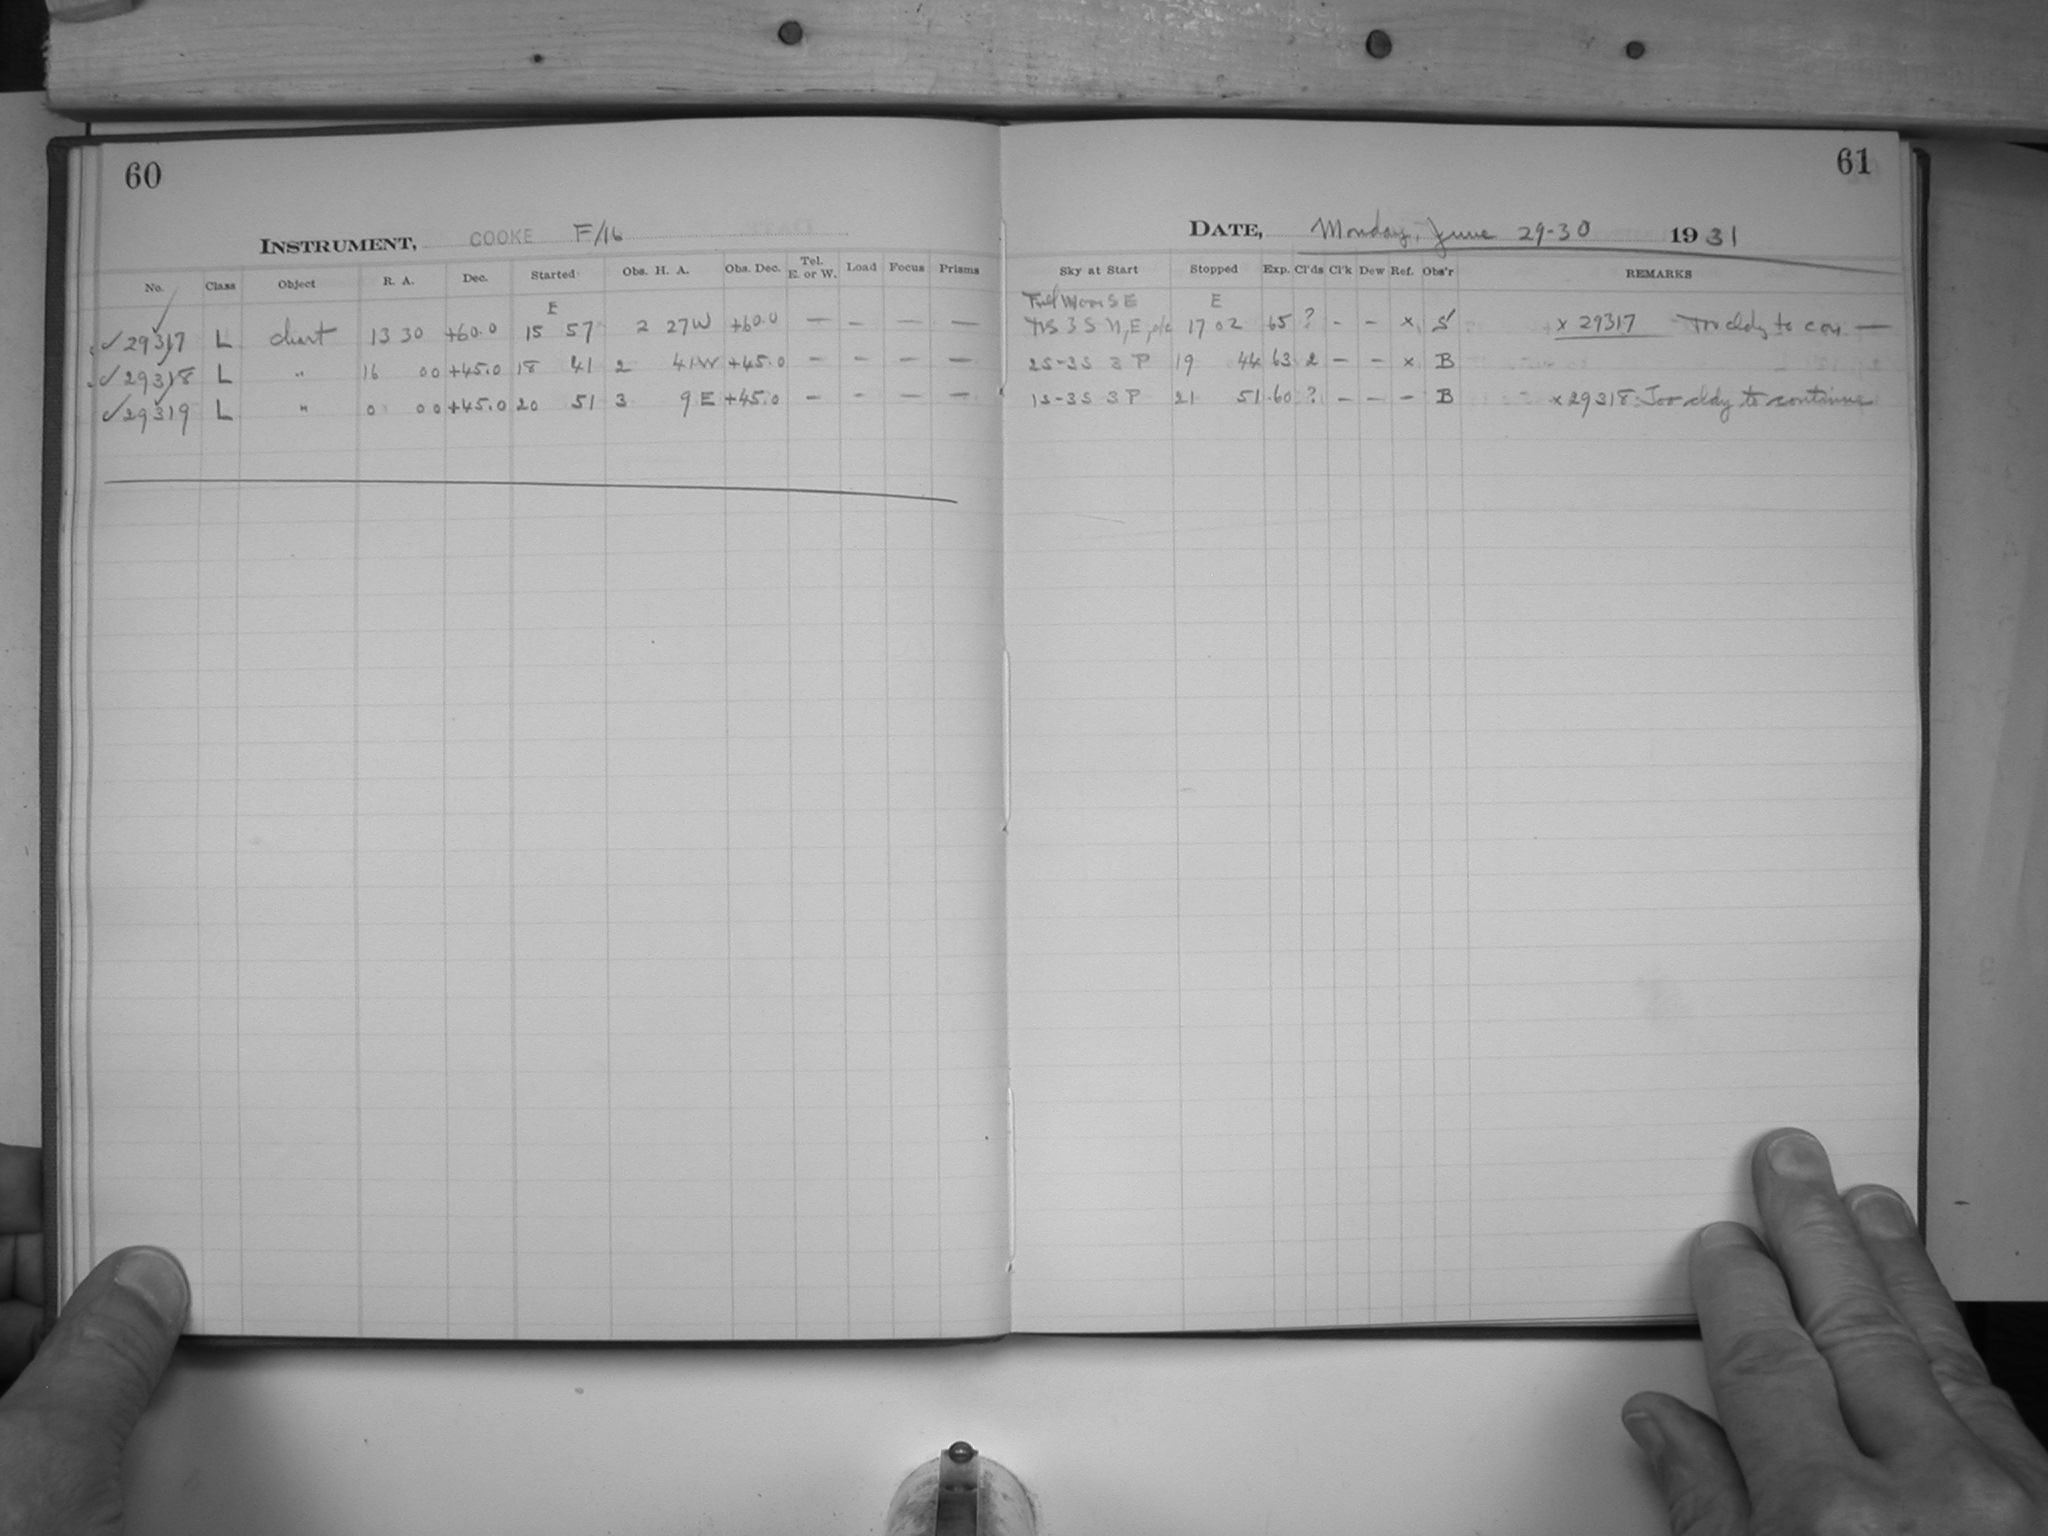 60
INSTRUMENT, COOKE F/16
No. Class Object R. A. Dec. Started Obs. H. A. Obs. Dec. Tel. E. or W. Load Focus Prisms
E
✓ 29317 L chart 13 30 +60.0 15 57 2 27W +60.0 — — — —
✓ 29318 L " 16 00 +45.0 18 41 2 41W +45.0 — — — —
✓ 29319 L " 0 00 +45.0 20 51 3 9 E +45.0 — — — —
61
DATE, Monday, June 29-30 1931
Sky at Start Stopped Exp. Cl'ds Cl'k Dew Ref. Obs'r REMARKS
Full Moon SE E
3 S N, E, 17 02 65 ? - - x S x 29317 Too cldy to con —
2S-3S 3 P 19 44 63 2 — — x B
1S-3S 3 P 21 51 60 ? — — — B x 29318 Too cldy to continue